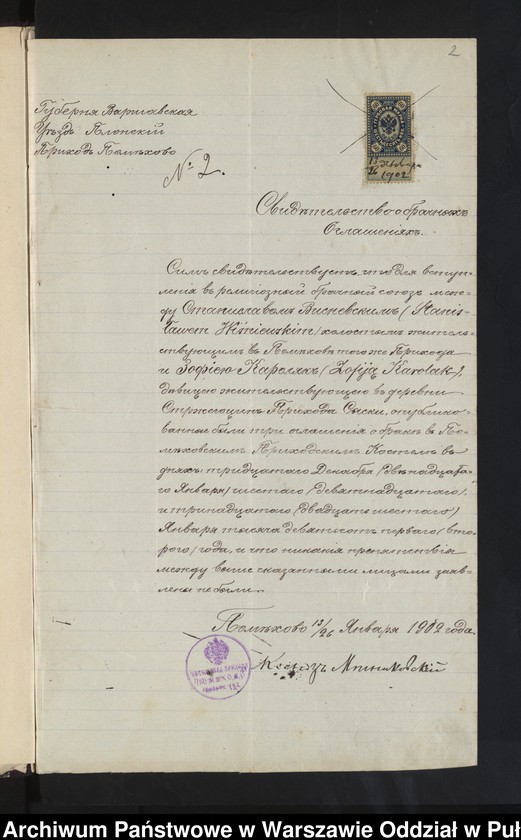 2
Губернія Варшавская
Уѣздъ Плонскій
Приходъ Помѣхово
№ 2.
13/26 Января
1902
Свидѣтельство о брачныхъ
Оглашеніяхъ.
Симъ свидѣтельствуетъ, что для вступ-
ленія въ религіозный брачный союзъ меж-
ду Станиславомъ Висневскимъ (Stanis-
ławem Wiśniewskim) холостымъ житель-
ствующимъ въ Помѣховѣ того же Прихода
и Зофіею Кароляк (Zofiją Karolak),
дѣвицею жительствующею въ деревни
Стржегоцинъ Прихода Сыски, опублико-
ванные были три оглашенія о бракѣ въ По-
мѣховскимъ Приходскимъ Костелѣ въ
дняхъ тридцатаго Декабря (двѣнадцата-
го Января) шестаго (девятнадцатаго),
и тринадцатаго (двадцать шестаго)
Января тысяча девятисотъ перваго (вто-
рого) года, и что никакія препятствія
между выше сказанными лицами заяв-
лены не были.
Помѣхово 13/26 Января 1902 года.
Ксендзъ
Archiwum Państwowe w Warszawie Oddział w Puł